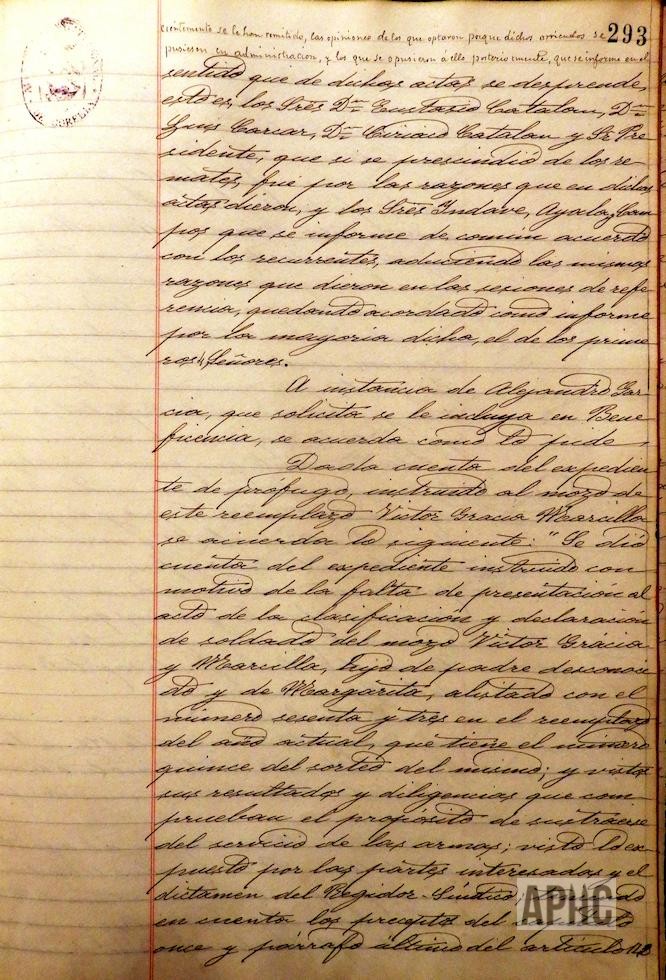 293
cientemente se le han remitido, las opiniones de los que optaron porque dichos arriendos se
pusiesen en administración, y los que se opusieron á ello posteriormente, que se informe en el
sentido que de dichas actas se desprende,
esto es, los Sres Dn Eustasio Catalan, Dn
Luis Carcar, Dn Ciriaco Catalan y Sr Pre-
sidente, que si se prescindió de los re-
mates, fué por las razones que en dichas
actas dieron, y los Sres Indave, Ayala, Cam
pos, que se informe de comun acuerdo
con los recurrentes, aduciendo las mismas
razones que dieron en las sesiones de refe
rencia, quedando acordado como informe
por la mayoria dicha, el de los prime
ros Señores.
A instancia de Alejandro Gar-
cia, que solicita se le incluya en Bene
ficencia, se acuerda como lo pide
Dada cuenta del expedien
te de prófugo, instruido al mozo de
este reemplazo Victor Gracia Marcilla
se acuerda lo siguiente: "Se dió
cuenta del expediente instruido con
motivo de la falta de presentacion al
acto de la clasificación y declaración
de soldado del mozo Victor Grácia
y Marcilla, hijo de padre desconoci
do y de Margarita, alistado con el
número sesenta y tres en el reemplazo
del año actual, que tiene el número
quince del sorteo del mismo; y vistos
sus resultados y diligencias que com
prueban el propósito de sustraerse
del servicio de las armas; visto lo ex-
puesto por las partes interesadas y el
dictamen del Regidor Síndico do
en cuenta los preceptos del
once y párrafo último del artículo
APHC